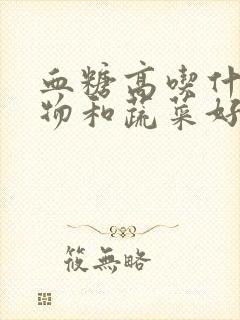 血糖高喫什
物和蔬菜好
筱無略